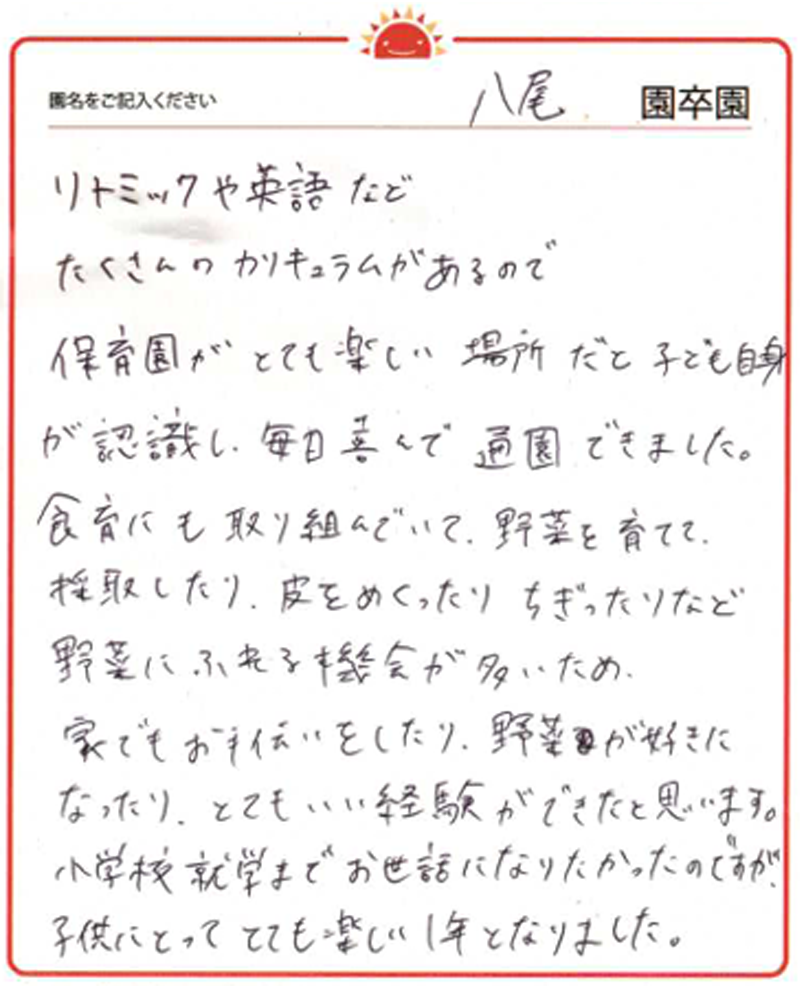 園名をご記入ください 八尾 園卒園
リトミックや英語など
たくさんのカリキュラムがあるので
保育園がとても楽しい場所だと子ども自身
が認識し、毎日喜んで通園できました。
食育にも取り組んでいて、野菜を育てて、
採取したり、皮をめくったりちぎったりなど
野菜にふれる機会が多いため、
家でもお手伝いをしたり、野菜が好きに
なったり、とてもいい経験ができたと思います。
小学校就学までお世話になりたかったのですが、
子供にとってとても楽しい1年となりました。